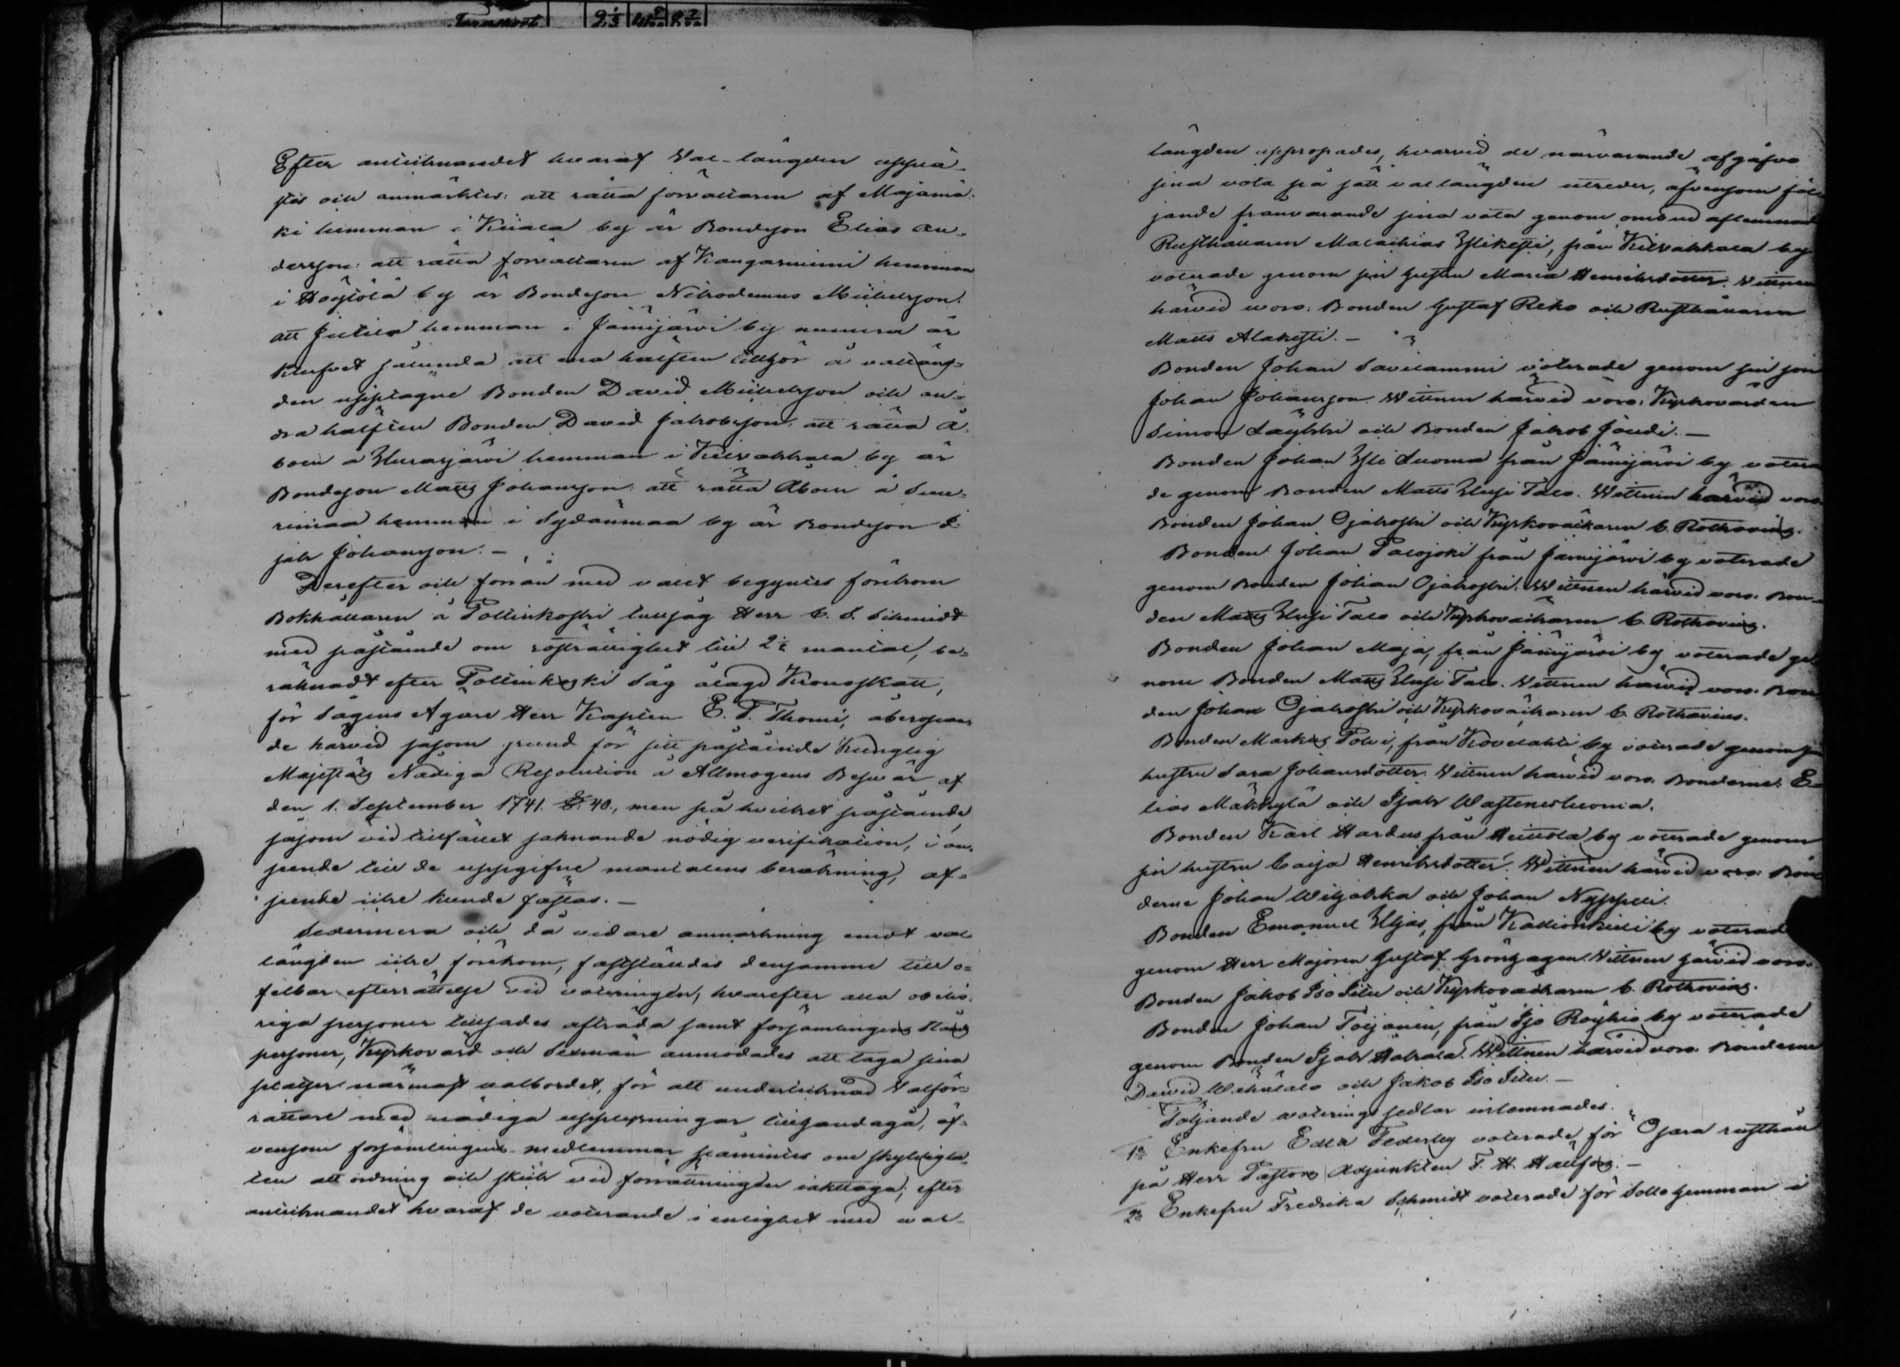 Transport
Efter anteknandet hvaraf Val-längden upplä-
stes och anmärktes: att rätta förvaltaren af Majamä-
ki hemman i Kiiala by är Bondeson Elias An-
dersson: att rätta förvaltaren af Kangasniemi hemman
i Höytölä by är Bondeson Nikodemus Mickelsson:
att Jutila hemman i Jämijärvi by numera är
klufvet sålunda att ena hälften tillhör å valläng-
den upptagne Bonden David Mickelsson och an-
dra hälften Bonden David Jakobsson: att rätta å
boen å Uurasjärvi hemman i Kilvakkala by är
Bondeson Matts Johansson: att rätta Åboen å
hemman i Sydänmaa by är Bondeson I-
sak Johansson. –
Derefter och förrän med valet begyntes förekom
Bokhållaren å Pollinkoski såg Herr C. S. Schmidt
med påstående om rösträttighet till mantal, be-
räknadt efter Pollinkoski Såg ålagd Kronoskatt,
för Sågens Ägare Herr Kapten E. F. Thomé, åberopan-
de härvid såsom grund för sitt påstående Kunglig
Majestäts Nådiga Resolution å Allmogens Besvär af
den 1. September 1741. §. 40., men på hvilket påstående,
såsom vid tillfället saknande nödig verifikation, i an-
seende till de uppgifne mantalens beräkning, af-
seende icke kunde fästas. –
Sedermera och då vidare anmärkning emot val-
längden icke förekom, fastställdes densamma till o-
felbar efterrättelse vid voteringen, hvarefter alla obehö-
riga personer tillsades afträda samt församlingens Stånds
personer, Kyrkovärd och Sexmän anmodades att taga sina
platser närmast valbordet, för att undertecknad Valför-
rättare med nödiga upplysningar tillhandagå, äf-
vensom församlingens medlemmar påmintes om skyldighe-
ten att ordning och skick vid förrättningen iakttaga; efter
anteknandet hvaraf de voterande i enlighet med val-
längden uppropades, hvarvid de närvarande afgåfvo
sina vota på sätt vallängden utreder, äfvensom föl-
jande frånvarande sina vota genom ombud aflemnade
Rusthållaren Malachias Ylikesti, från Kilvakkala by
voterade genom sin hustru Maria Henriksdotter. Vittnen
härvid voro: Bonden Gustaf Reko och Rusthållaren
Matts Alakesti. –
Bonden Johan Savilammi voterade genom sin son
Johan Johansson. Wittnen härvid voro: Kyrkovärden
Simon Läykki och Bonden Jakob Jäudi. –
Bonden Johan Yli Luoma från Jämijärvi by votera-
de genom Bonden Matts Uusi Talo. Wittnen härvid voro
Bonden Johan Ojakoski och Kyrkoväktaren C. Rothovius.
Bonden Johan Palojoki från Jämijärvi by voterade
genom Bonden Johan Ojakoski. Wittnen härvid voro: Bon-
den Matts Uusi Talo och Kyrkoväktaren C. Rothovius.
Bonden Johan Maja, från Jämijärvi by voterade ge-
nom Bonden Matts Uusi Talo. Vittnen härvid voro: Bon-
den Johan Ojakoski och Kyrkoväktaren C. Rothovius.
Bonden Markus Polvi, från Kovelahti by voterade genom sin
hustru Sara Johansdotter. Vittnen härvid voro Bönderne: E-
lias Mäkkylä och Isak Wastenesluoma.
Bonden Karl Hardus från Heittola by voterade genom
sin hustru Caisa Henriksdotter. Wittnen härvid voro: Bön-
derne Johan Wiljakka och Johan Nyppeli.
Bonden Emanuel Uljas, från Kallionkieli by voterade
genom Herr Majoren Gustaf Grönhagen. Vittnen härvid voro:
Bonden Jakob Iso Situ och Kyrkoväktaren C. Rothovius.
Bonden Johan Toijanen, från Iso Röyhiö by voterade
genom Bonden Isak Hakala. Wittnen härvid voro: Bönderne
David Wehkalalo och Jakob Iso Situ. –
Följande voterings sedlar inlemnades.
1o Enkefru Edla Federley voterade för Ojara rusthåll
på Herr Pastors Adjunkten F. H. Hallfors. –
2o Enkefru Fredrika Schmidt voterade för Sollo hemman i